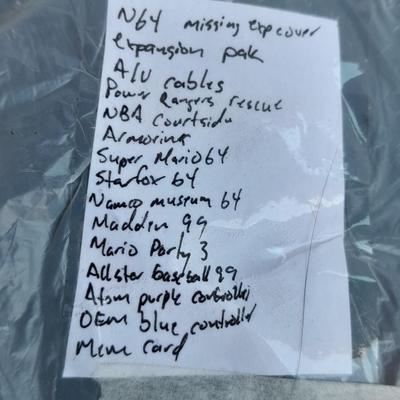 N64 missing exp cover
expansion pak
A/V cables
Power Rangers rescue
NBA Courtside
Armorines
Super Mario 64
Starfox 64
Namco museum 64
Madden 99
Mario Party 3
Allstar baseball 99
Atom purple controller
OEM blue controller
Mem card